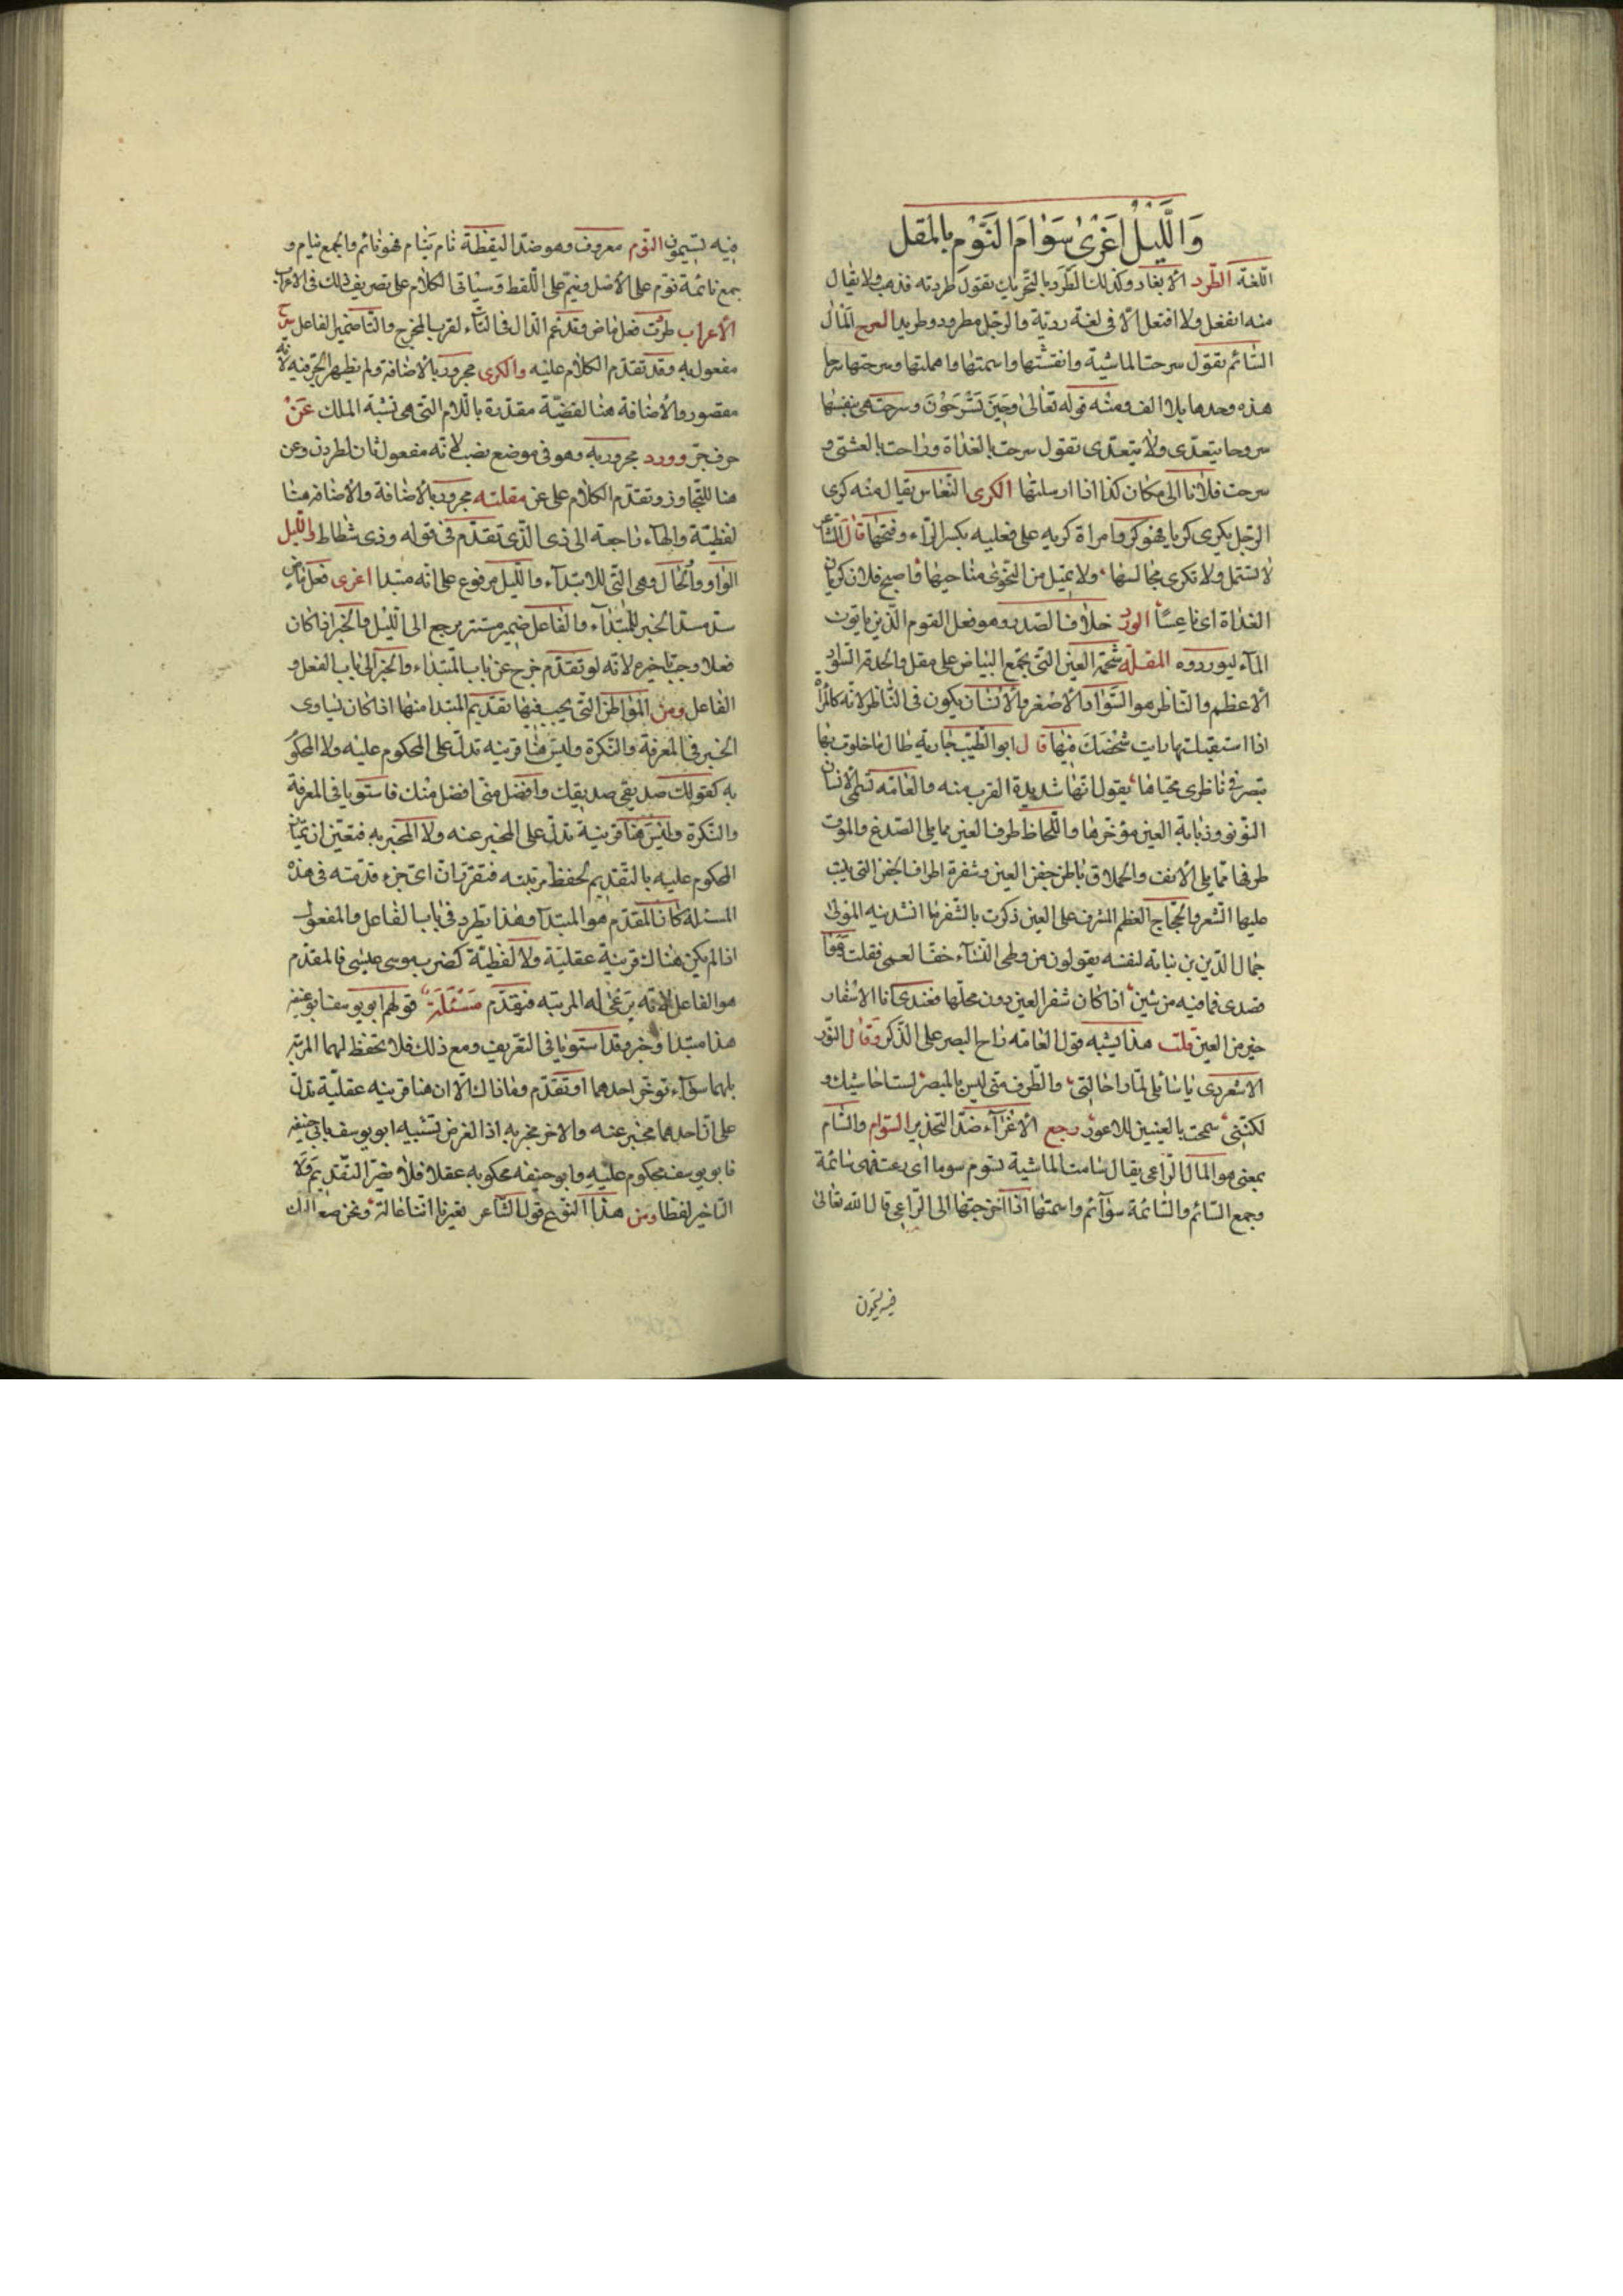 وَاللَّيْلُ اَغْرٰى سَوٰامَ النَّوْمِ بالمقل
اللّغة الطّرد الأبعاد وكذلك الطّرد بالتحريك تقول طردته فذهب ولا يقال
منه انفعل ولا افتعل الّا فى لغة رديّة والرجل مطرود وطريد السرح المٰال
السّائم تقول سرحت الماشية وانفشتها واسمتها واهملتها وسرحتها سرحا
هذه وحدها بلا الف ومنه قوله تعٰالى وَحِينَ تَسْرَحُوْنَ وسرحت هى بنفسها
سروحا يتعدّى ولا يتعدّى تقول سرحت بالغداة وراحت بالعشىّ و
سرحت فلانا الى مكان كذا اذا ارسلتها الكرى النّعاس يقال منه كرى
الرّجل يكرى كريا فهو كر وامراة كريه على فعليه بكسر الرّاء وفتحها قال الشّاعر
لا تستمل ولا تكرى مجالسها ولا يمّيل من النّجوى مناجيها فاصبح فلان كريان
الغداة اى ناعسًا الورد خلاف الصّدر وهو فعل القوم الّذين ياتون
المآء ليوردوه المقلة شحمة العين التى تجمع البياض على مقل والحدقة السّواد
الأعظم والنّاظر هو السّواد الأصغر والأنسان يكون فى النّاظر لانّه كالمرآة
اذا استقبلتها رايت شخصك فيها قال ابو الطّيّب جارية طال ما خلوت بها
تبصر فى ناظرى محيّاها يقول انّها شديدة القرب منه والعامّه تسمّى الانسان
البؤبؤ وذبابة العين مؤخرها واللّحاظ طرف العين مما يلى الصّدغ والموق
طرفها ممّا يلى الأنف والحملاق باطن جفن العين وشفرة اطراف الجفن التى ينبت
عليها الشّعر والحجاج العظم المشرف على العين ذكرت بالشّفر ما انشدنيه المولى
جمال الدّين بن نباته لنفسه يقولون من وطى النّسآء خف العمى فقلت
قصدى فما فيه من شين اذا كان شفر العين دون محلّها فعندى انا الاشفار
خير من العين قلت هذا يشبه قول العامه راح البصر على الذّكر وقال النّور
الاسعردى يا سائلى لمّا راى حالتى والطّرف منّى ليس بالمبصر لست احاشيك و
لكنّنى سمحت بالعينين للاعور رجع الأغرآء ضدّ التحذير السّوام والسّام
بمعنى هو المال الرّاعى يقال سامت الماشية تسوم سوما اى رعت فهى سائمة
وجمع السّائم والسّائمة سوآئم واسمتها اذا اخرجتها الى الرّاعى قال اللّه تعٰالى
فيه تسيمون
فيه تسيمون النّوم معروف وهو ضدّ اليقظة نام ينام فهو نائم والجمع نيام و
جمع نائمة نوّم على الأصل ونيّم على اللّفظ وسيٰاتى الكلام على تصريف ذلك فى الاعراب
الأعراب طردت فعل ماض وقد ادغم الدّال فى التّاء لقرب المخرج والتّا ضمير الفاعل سرح
مفعول به وقد تقدّم الكلام عليه والكرى مجرور بالأضافة ولم يظهر الجرّ فيه لانّه
مقصور والأضافة هنا لفضيّة مقدّرة باللّام التى هى نسبة الملك عَنْ
حرف جرّ وورد مجرور به وهو فى موضع نصب لانّه مفعول ثان لطردت وعن
هنا للتجاوز وتقدّم الكلام على عن مقلته مجرور بالأضافة والأضافة هنا
لفظيّة والهآء راجعة الى ذى الّذى تقدّم فى قوله وذى شطاط واللّيل
الواو واو الحال وهى التّى للابتدآء والليل مرفوع على انّه مبتدا اغرى فعل ماض
سدّ مسدّ الخبر للمبتدآء والفاعل ضمير مستتر يرجع الى اللّيل والخبر اذا كان
فعلا وجب تاخيره لانّه لو تقدّم خرج عن باب المبتداء والخبر الى باب الفعل و
الفاعل ومن المواطن التى يجب فيها تقديم المبتدا منها اذا كان تساوى
الخبر فى المعرفة والنّكرة وليس هنا قرينه تدلّ على المحكوم عليه ولا المحكوم
به كقولك صديقى صديقك وافضل منّى افضل منك فاستويا فى المعرفة
والنّكرة وليس هنا قرينة تدلّ على المخبر عنه ولا المخبر به فتعيّن ان يمتاز
المحكوم عليه بالتّقديم لحفظ مرتبته فتقرّر انّ اىّ جزء قدّمته فى هذه
المسئلة كان المقدّم هو المبتدآ وهذا يطّرد فى باب الفاعل والمفعول
اذا لم يكن هناك قرينة عقليّة ولا لفظيّة كضرب موسى عيسى فالمقدّم
هو الفاعل لانّه يرعى له المرتبه فيقدّم مَسْئَلَة قولهم ابو يوسف ابو حنيفه
هذا مبتدا وخبر وقد استويا فى التعريف ومع ذلك فلا تحفظ لهما المرتبه
بلهما سوآء توخّر احدهما او تقدّم وما ذاك الّا ان هنا قرينه عقليّة تدلّ
على انّ احدهما مخبر عنه والاخر مخبر به اذ الغرض تشبيه ابو يوسف بابى حنيفه
فابو يوسف محكوم عليه وابو حنيفه محكوم به عقلا فلا يضرّ التّقديم ولا
التّاخير لفظا ومن هذا النّوع قول الشّاعر